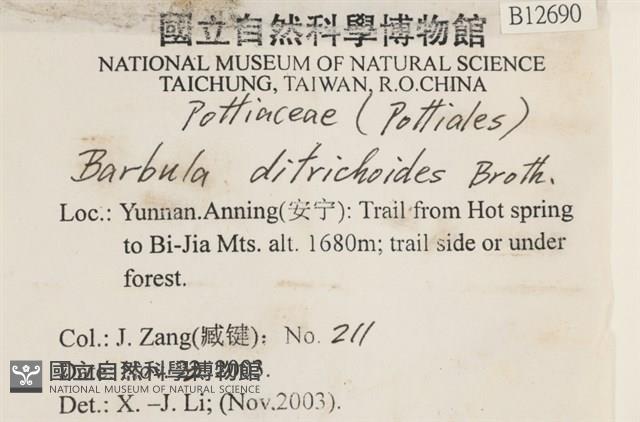 B12690
國立自然科學博物館
NATIONAL MUSEUM OF NATURAL SCIENCE
TAICHUNG, TAIWAN, R.O.CHINA
Pottiaceae (Pottiales)
Barbula ditrichoides Broth.
Loc.: Yunnan.Anning(安宁): Trail from Hot spring
to Bi-Jia Mts. alt. 1680m; trail side or under
forest.
Col.: J. Zang(臧键); No. 211
2003.
國立自然科學博物館
NATIONAL MUSEUM OF NATURAL SCIENCE
Det.: X. –J. Li; (Nov.2003).